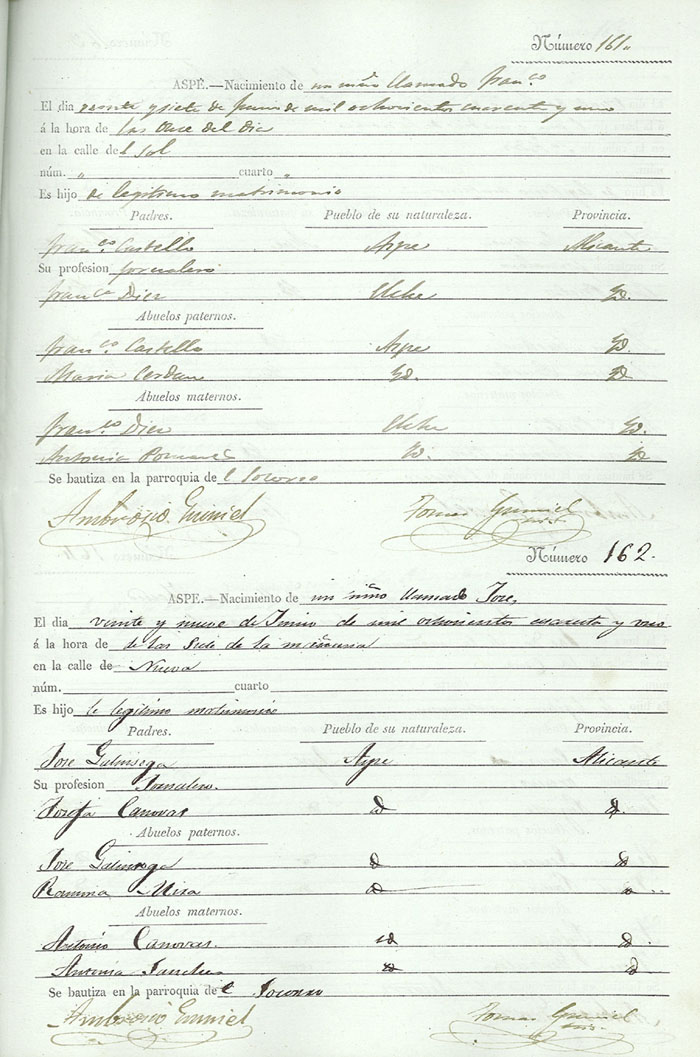 Número 161.
ASPE.—Nacimiento de un niño llamado Fran.co
El dia veinte y siete de Junio de mil ochocientos cuarenta y uno
á la hora de las once del dia
en la calle de l Sol
núm. „ cuarto „
Es hijo de legitimo matrimonio
Padres. Pueblo de su naturaleza. Provincia.
Fran.co Castello Aspe Alicante
Su profesion Jornalero
Fran.ca Diez Elche Yd.
Abuelos paternos.
Fran.co Castello Aspe Yd.
Maria Cerdan Yd. Yd
Abuelos maternos.
Fran.co Diez Elche Yd.
Antonia Pomares Yd. Yd
Se bautiza en la parroquia de l Socorro
Ambrosio Gumiel Tomas Gumiel
Número 162.
ASPE.—Nacimiento de un niño llamado Jose.
El dia veinte y nueve de Junio de mil ochocientos cuarenta y uno
á la hora de de las Siete de la mañana
en la calle de Nueva
núm. cuarto
Es hijo de legitimo matrimonio
Padres. Pueblo de su naturaleza. Provincia.
Jose Galinsoga Aspe Alicante
Su profesion Jornalero.
Josefa Canovas id id.
Abuelos paternos.
Jose Galinsoga id id
Ramona Mira id
Abuelos maternos.
Antonio Canovas. id id.
Antonia Sanchez id id
Se bautiza en la parroquia de l Socorro
Ambrosio Gumiel Tomas Gumiel